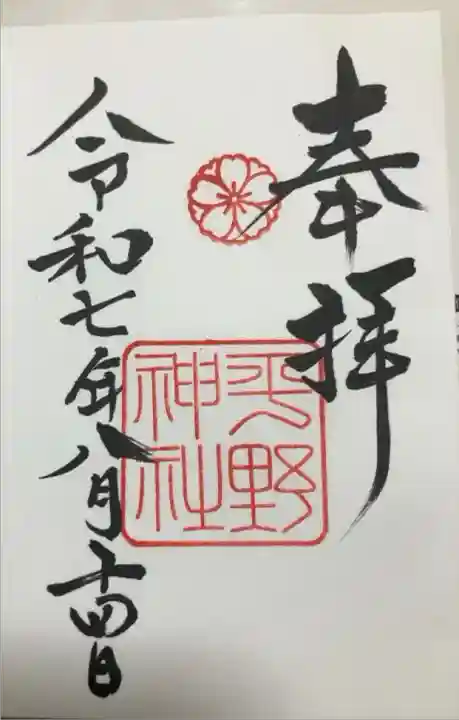 奉拝
平野
神社
令和七年八月十四日